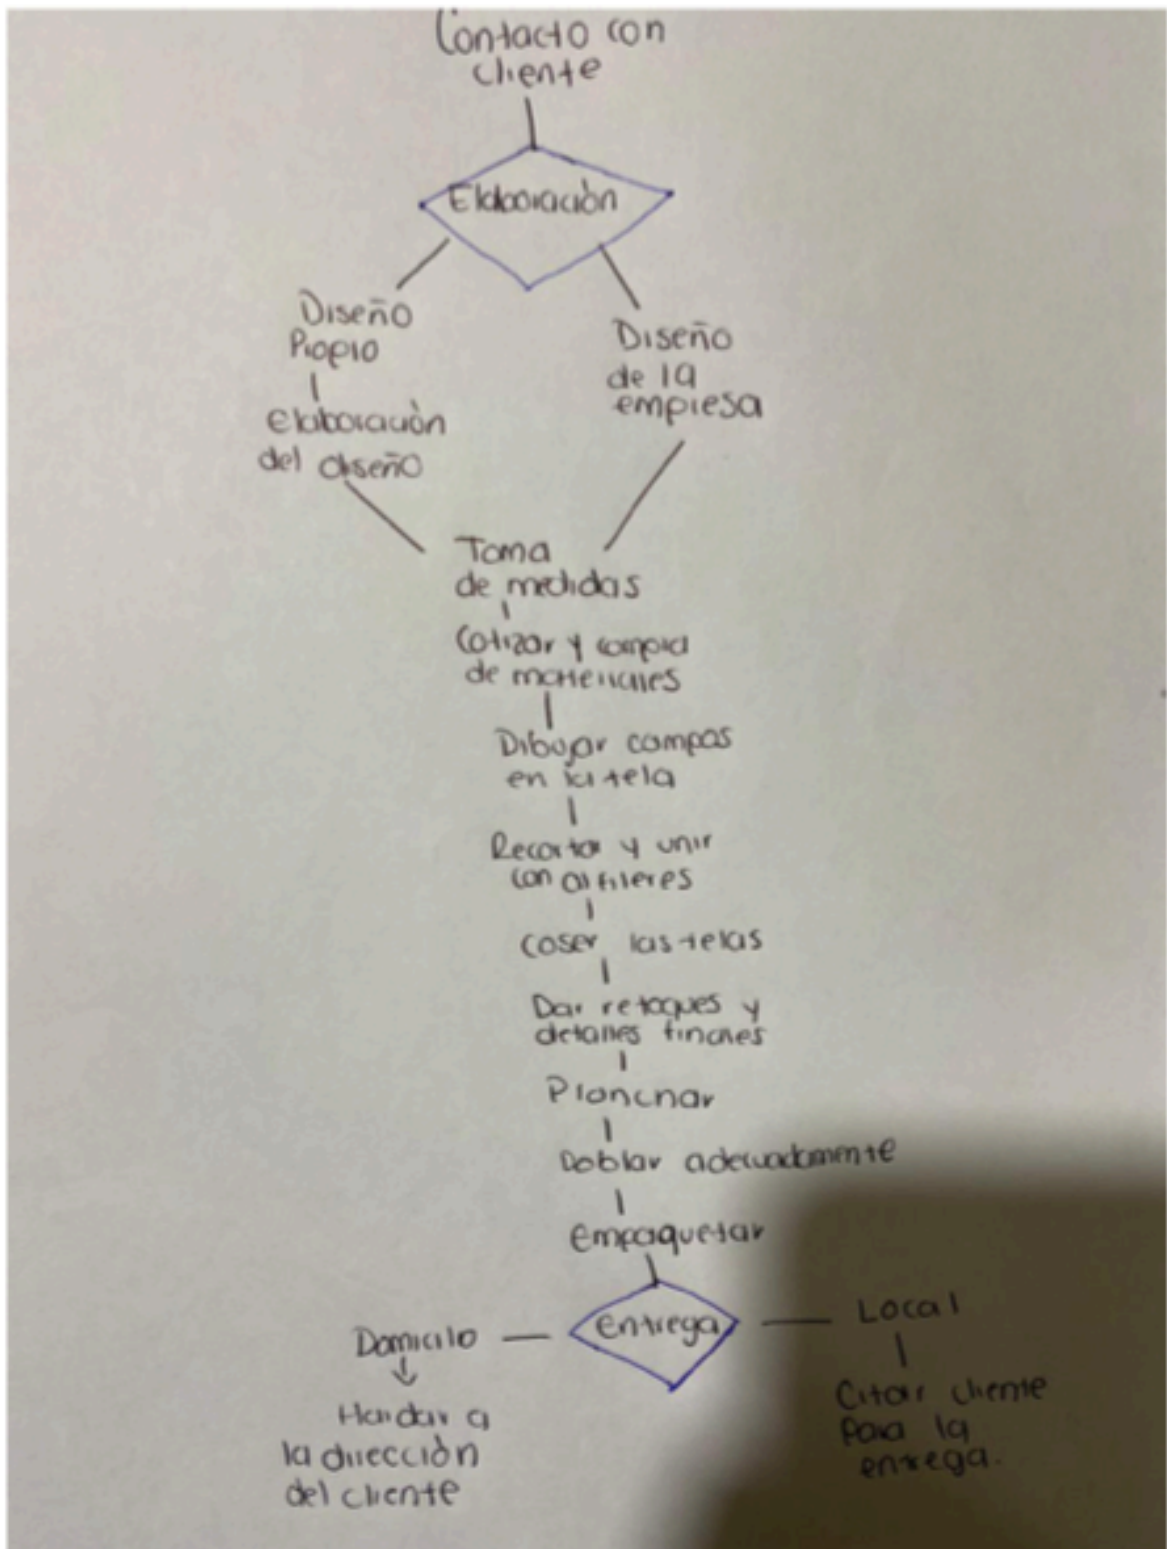 Contacto con
cliente
Elaboración
Diseño
Propio
Diseño
de la
empresa
Elaboración
del diseño
Toma
de medidas
Cotizar y compra
de materiales
Dibujar campas
en la tela
Recortar y unir
con alfileres
coser las telas
Dar retoques y
detalles finales
Planchar
Doblar adecuadamente
empaquetar
entrega
Domicilo
Local
Mandar a
la dirección
del cliente
Citar cliente
para la
entrega.